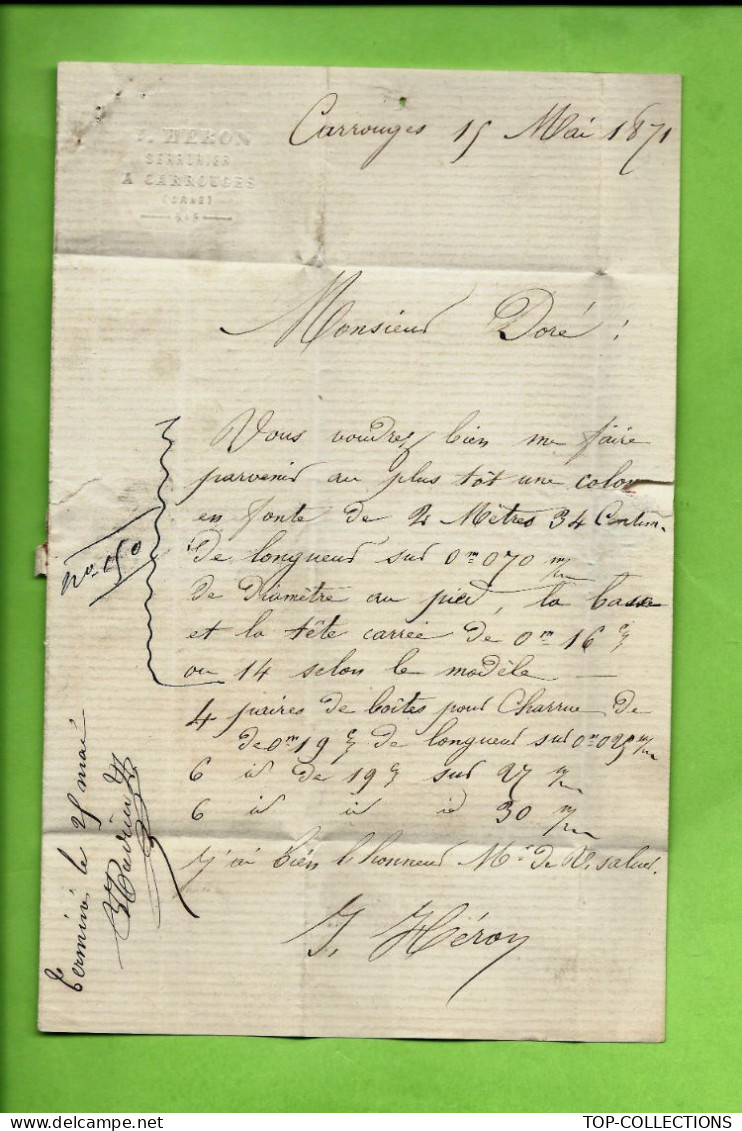 J. HERON
SERRURIER
A CARROUGES
(ORNE)
Carrouges 15 Mai 1871
Monsieur Doré :
Vous voudrez bien me faire
parvenir au plus tôt une colon
en fonte de 2 Mètres 34 Centim.
de longueur sur 0m070 m/m
de Diamètre au pied, la base
et la tête carrée de 0m 16 c
ou 14 selon le modèle
4 paires de boîtes pour Charrue de
de 0m 19 c de longueur sur 0m 025 m/m
6 id de 19 c sur 27 m/m
6 id id id 30 m/m
J'ai bien l'honneur Mr. de V. saluer.
J. Héron
no. 150
terminé le 25 mai
TOP-COLLECTIONS